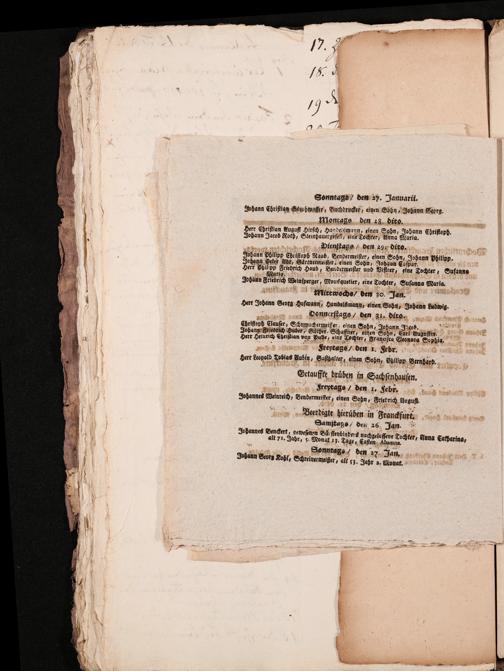 17.
18.
19
Sonntags / den 27. Januarii.
Johann Christian, Buchdrucker, einen Sohn, Johann Georg.
Montags den 28. dito.
Herr Christian August Hirsch, Handelsmann, einen Sohn, Johann Christoph.
Johann Jacob Roth, eine Tochter, Anna Maria.
Dienstags / den 29. dito.
Johann Philipp Christoph Raab, Bendermeister, einen Sohn, Johann Philipp.
Johann Peter, Gärtnermeister, einen Sohn, Johann Caspar.
Herr Philipp Friedrich Haub, Bendermeister und Visirer, eine Tochter, Susanna
Maria.
Johann Friedrich Weinsperger, Mousquetier, eine Tochter, Susanna Maria.
Mittwochs / den 30. Jan.
Herr Johann Georg Hofmann, Handelsmann, einen Sohn, Johann Ludwig.
Donnerstags / den 31. dito.
Christoph Clauer, Schumachermeister, einen Sohn, Johann Jacob.
Johann Friedrich Huber, einen Sohn, Carl Augustin.
Herr Heinrich Christian von, eine Tochter, Francisca Eleonora Sophia.
Freytags / den 1. Febr.
Herr Leopold Tobias Aubin, Gasthalter, einen Sohn, Philipp Bernhard.
Getauffte drüben in Sachsenhausen.
Freytags / den 1. Febr.
Johannes Weinreich, Bendermeister, einen Sohn, Friedrich August.
Beerdigte hierüben in Franckfurt.
Samstags / den 26. Jan.
Johannes Benckert, gewesenen nachgelassene Tochter, Anna Catharina,
alt 71. Jahr, 5. Monat 13. Tage,
Sonntags / den 27. Jan.
Johann Georg Kohl, Schreinermeister, alt 53. Jahr 2. Monat.